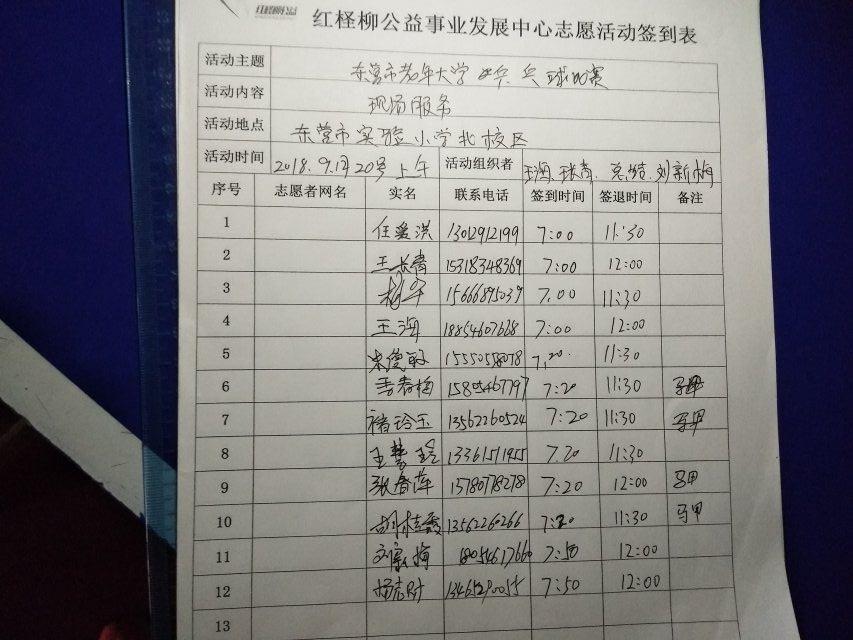 红柽柳公益事业发展中心志愿活动签到表
活动主题 东营市老年大学乒乓球比赛
活动内容 现场服务
活动地点 东营市实验小学北校区
活动时间 2018.9月20号上午 活动组织者 王海、张青、刘新梅
序号 志愿者网名 实名 联系电话 签到时间 签退时间 备注
1 任爱洪 13012912199 7:00 11:30
2 王长青 15318348369 7:00 12:00
3 杨军 15666895039 7:00 11:30
4 王海 18854607668 7:00 12:00
5 宋俊敏 15550558078 7:20 11:30
6 李春梅 15805467797 7:20 11:30 马甲
7 褚玲玉 13562260524 7:20 11:30 马甲
8 王慧玲 13361571955 7:20 11:30
9 张春萍 15780778278 7:20 12:00 马甲
10 胡桂霞 13562260266 7:20 11:30 马甲
11 18054617660 7:50 12:00
12 杨志财 13465290055 7:50 12:00
13